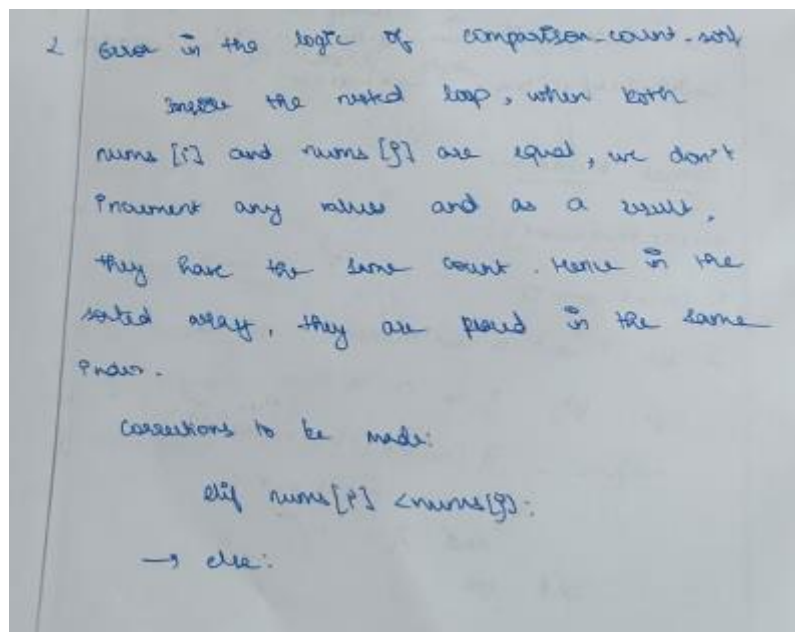 2 Error in the logic of comparison-count-sort
Inside the nested loop, when both
nums [i] and nums [j] are equal, we don't
increment any values and as a result,
they have the same count. Hence in the
sorted array, they are placed in the same
index.
Corrections to be made:
elif nums[i] < nums[j]:
→ else: